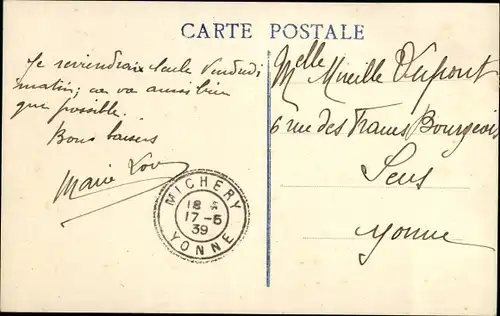 CARTE POSTALE
Je reviendrai seule Vendredi
matin; ça va aussi bien
que possible.
Bons baisers
Marie Lou
MICHERY
18
17-5
39
YONNE
Melle Mireille Dupont
6 rue des Francs Bourgeois
Sens
Yonne